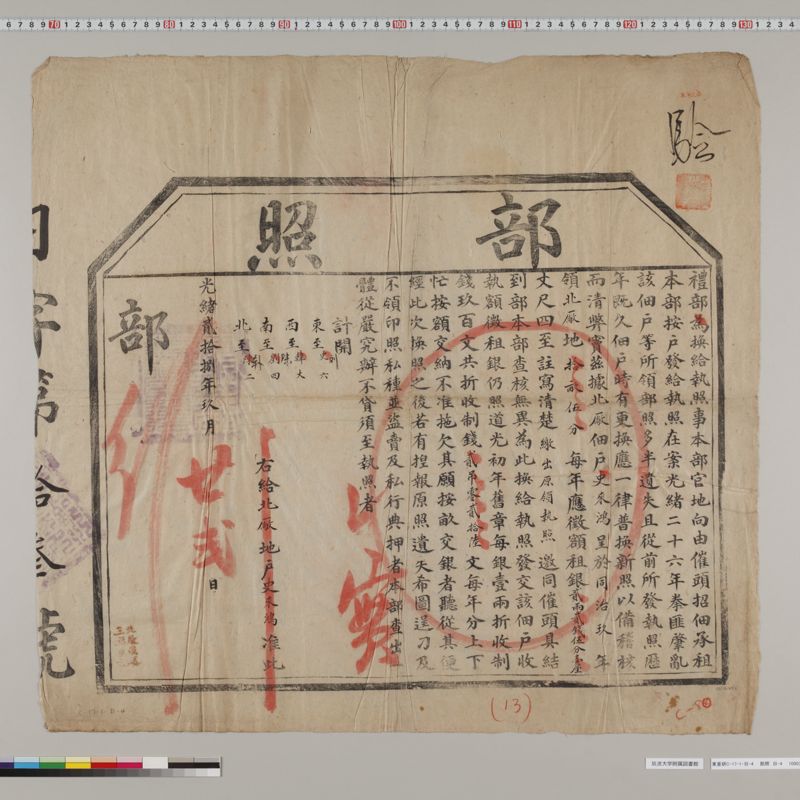 驗
部照
禮部為換給執照事本部官地向由催頭招佃承租
本部按戶發給執照在案光緒二十六年拳匪肇亂
該佃戶等所領部照多半遺失且從前所發執照歷
年既久佃戶時有更換應一律普換新照以備稽核
而清弊竇茲據北厰佃戶史永鴻呈於同治玖年
領北厰地拾貳伍分每年應徵額租銀貳兩貳錢伍分
丈尺四至註寫清楚繳出原領執照邀同催頭具結
到部本部查核無異為此換給執照發交該佃戶收
執額徵租銀仍照道光初年舊章每銀壹兩折收制
錢玖百文共折收制錢貳吊零貳拾陸文每年分上下
忙按額交納不准拖欠其願按畝交銀者聽從其便
經此次換照之後若有捏報原照遺天希圖逞刀及
不領印照私種並盜賣及私行典押者本部查出
體從嚴究辦不貸須至執照者
計開
東至史六
西至大
南至劉四
北至二
右給北厰地戶史永鴻准此
光緒貳拾捌年玖月廿貳日
部
字第拾叁號
(13)